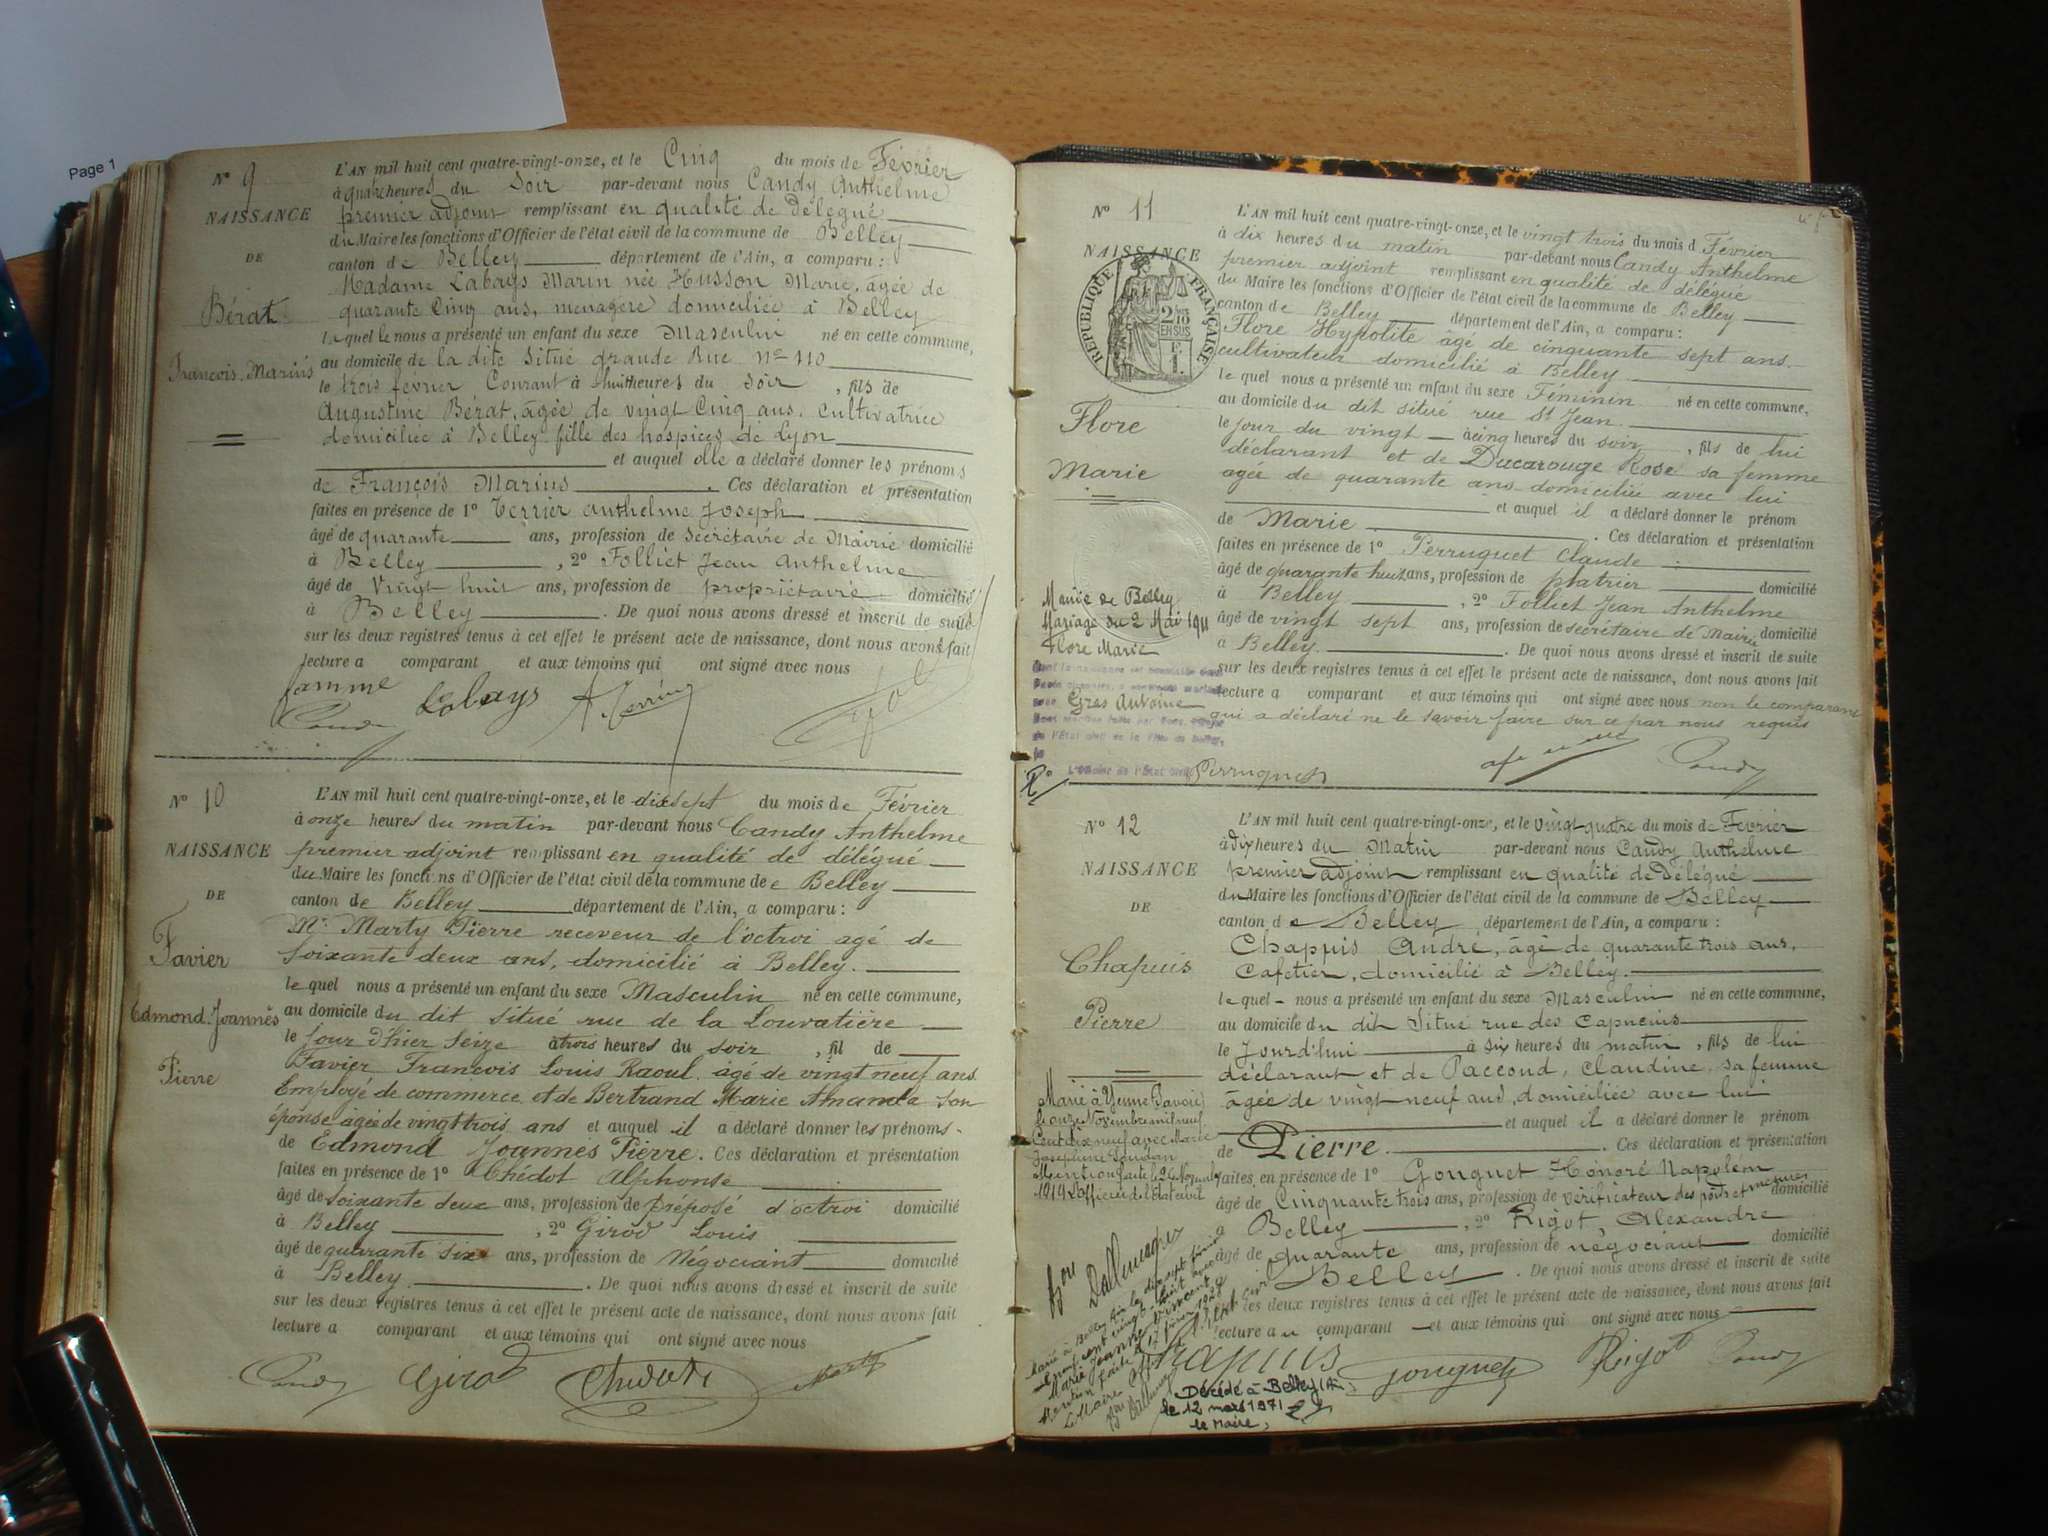 Page 1
N° 9
NAISSANCE
DE
Bérat
François Marius
L'AN mil huit cent quatre-vingt-onze, et le Cinq du mois de Février
à quatre heures du Soir par-devant nous Candy Anthelme
premier adjoint remplissant en qualité de délégué
du Maire les fonctions d'Officier de l'état civil de la commune de Belley
canton de Belley département de l'Ain, a comparu :
Madame Labays Marin née Husson Marie, âgée de
quarante Cinq ans, menagère domiciliée à Belley
le quel nous a présenté un enfant du sexe Masculin né en cette commune,
au domicile de la dite Situé grande Rue n° 110
le trois février Courant à huit heures du Soir , fils de
Augustine Bérat, âgée de vingt Cinq ans, Cultivatrice
domiciliée à Belley fille des hospices de Lyon
et auquel elle a déclaré donner les prénoms
de François Marius . Ces déclaration et présentation
faites en présence de 1° Terrier Anthelme Joseph
âgé de quarante ans, profession de Secrétaire de Mairie domicilié
à Belley , 2° Folliet Jean Anthelme
âgé de Vingt huit ans, profession de propriétaire domicilié
à Belley . De quoi nous avons dressé et inscrit de suite
sur les deux registres tenus à cet effet le présent acte de naissance, dont nous avons fait
lecture a comparant et aux témoins qui ont signé avec nous
famme Labays
Candy
N° 10
NAISSANCE
DE
Favier
Edmond Joannès
Pierre
L'AN mil huit cent quatre-vingt-onze, et le dix sept du mois de Février
à onze heures du matin par-devant nous Candy Anthelme
premier adjoint remplissant en qualité de délégué
du Maire les fonctions d'Officier de l'état civil de la commune de Belley
canton de Belley département de l'Ain, a comparu :
Mr Marty Pierre receveur de l'octroi agé de
Soixante deux ans, domicilié à Belley.
le quel nous a présenté un enfant du sexe Masculin né en cette commune,
au domicile du dit situé rue de la Louvatière
le jour d'hier Seize à trois heures du soir , fil de
Favier François Louis Raoul agé de vingt neuf ans
Employé de commerce et de Bertrand Marie Amanda Son
épouse agée de vingt trois ans et auquel il a déclaré donner les prénoms
de Edmond Joannès Pierre. Ces déclaration et présentation
faites en présence de 1° Chédot Alphonse
âgé de soixante deux ans, profession de préposé d'octroi domicilié
à Belley , 2° Girod Louis
âgé de quarante six ans, profession de Négociant domicilié
à Belley . De quoi nous avons dressé et inscrit de suite
sur les deux registres tenus à cet effet le présent acte de naissance, dont nous avons fait
lecture a comparant et aux témoins qui ont signé avec nous
Candy Girod Chédot Marty
N° 11
NAISSANCE
RÉPUBLIQUE FRANÇAISE
2/10 EN SUS
Flore
Marie
L'AN mil huit cent quatre-vingt-onze, et le vingt trois du mois d Février
à dix heures du matin par-devant nous Candy Anthelme
premier adjoint remplissant en qualité de délégué
du Maire les fonctions d'Officier de l'état civil de la commune de Belley
canton de Belley département de l'Ain, a comparu :
Flore Hypolite âgé de cinquante sept ans
cultivateur domicilié à Belley
le quel nous a présenté un enfant du sexe Féminin né en cette commune,
au domicile du dit situé rue St Jean
le jour du vingt à cinq heures du soir , fils de lui
déclarant et de Ducarouge Rose sa femme
agée de quarante ans domiciliée avec lui
et auquel il a déclaré donner le prénom
de Marie . Ces déclaration et présentation
faites en présence de 1° Perruquet Claude
âgé de quarante huit ans, profession de platrier domicilié
à Belley , 2° Folliet Jean Anthelme
âgé de vingt sept ans, profession de secrétaire de Mairie domicilié
à Belley . De quoi nous avons dressé et inscrit de suite
sur les deux registres tenus à cet effet le présent acte de naissance, dont nous avons fait
lecture a comparant et aux témoins qui ont signé avec nous non le comparant
qui a déclaré ne le savoir faire sur ce par nous requis
Perruquet Candy
Mairie de Belley
Mariage du 2 Mai 1911
Flore Marie
Gras Antoine
de l'État civil de la Ville de Belley,
L'Officier de l'État Civil
N° 12
NAISSANCE
DE
Chapuis
Pierre
L'AN mil huit cent quatre-vingt-onze, et le Vingt quatre du mois de Février
à dix heures du Matin par-devant nous Candy Anthelme
premier adjoint remplissant en qualité de Délégué
du Maire les fonctions d'Officier de l'état civil de la commune de Belley
canton de Belley département de l'Ain, a comparu :
Chapuis André, âgé de quarante trois ans,
Cafetier, domicilié à Belley.
le quel nous a présenté un enfant du sexe Masculin né en cette commune,
au domicile du dit Situé rue des Capucins
le Jourd'hui à six heures du matin , fils de lui
déclarant et de Paccond, Claudine, sa femme
âgée de vingt neuf ans, domiciliée avec lui
et auquel il a déclaré donner le prénom
de Pierre . Ces déclaration et présentation
faites, en présence de 1° Gouguet Honoré Napoléon
âgé de Cinquante trois ans, profession de Vérificateur des poids et mesures domicilié
à Belley , 2° Rigot, Alexandre
âgé de quarante ans, profession de négociant domicilié
Belley . De quoi nous avons dressé et inscrit de suite
les deux registres tenus à cet effet le présent acte de naissance, dont nous avons fait
lecture au comparant et aux témoins qui ont signé avec nous
Chapuis Gouguet Rigot Candy
Marié à Yenne (Savoie)
le onze Novembre mil neuf
Cent dix neuf avec Marie
Joséphine
Mention faite le
1919 L'officier de l'état civil
Marié à Belley Ain le dix sept février
neuf cent vingt huit avec
Marie Jeanne Vincent
Mention faite le 17 février 1928
Le Maire
Décédé à Belley (Ain)
le 12 mars 1971
le Maire,